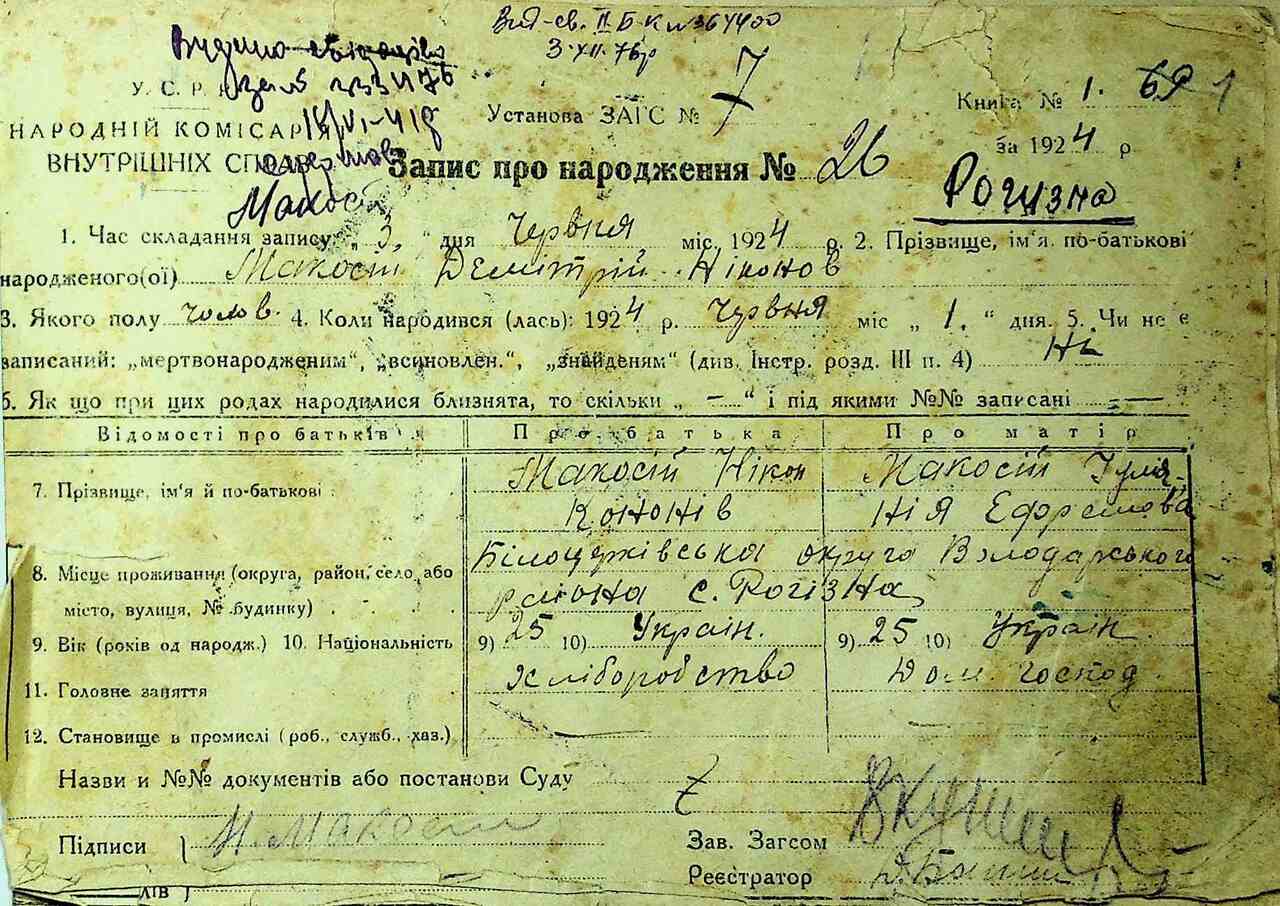 Вид. св. ІІ Б К № 367400
3-XII. 76р
Видано
У. С. Р. Р.
НАРОДНІЙ КОМІСАР
ВНУТРІШНІХ СПРАВ
Макосій
Установа ЗАГС № 7
Книга № 1. 69 1
за 1924 р
Запис про народження № 26
Рогизна
1. Час складання запису „ 3. “ дня Червня міс. 1924 р. 2. Прізвище, ім'я по-батькові
народженого(ої) Макосій Демитрій Ніконов
3. Якого полу чолов. 4. Коли народився (лась): 1924 р. Червня міс „ 1. “ дня. 5. Чи не є
записаний: „мертвонародженим“, „всиновлен.“, „знайденям“ (див. Інстр. розд. III п. 4) Ні
6. Як що при цих родах народилися близнята, то скільки „ — “ і під якими №№ записані —
Відомості про батьків Про батька Про матір
7. Прізвище, ім'я й по-батькові Макосій Нікон Макосій Улия-
Кононів нія Ефремова
Білоцерківська округа Володарського
8. Місце проживання (округа, район, село або
района с. Рогізна
місто, вулиця, № будинку)
9. Вік (років од народж.) 10. Національність 9) 25 10) Україн. 9) 25 10) Україн.
11. Головне заняття Хліборобство Дом. господ.
12. Становище в промислі (роб., служб., хаз.) — —
Назви и №№ документів або постанови Суду
Підписи Н. Макосій
Зав. Загсом
Реєстратор